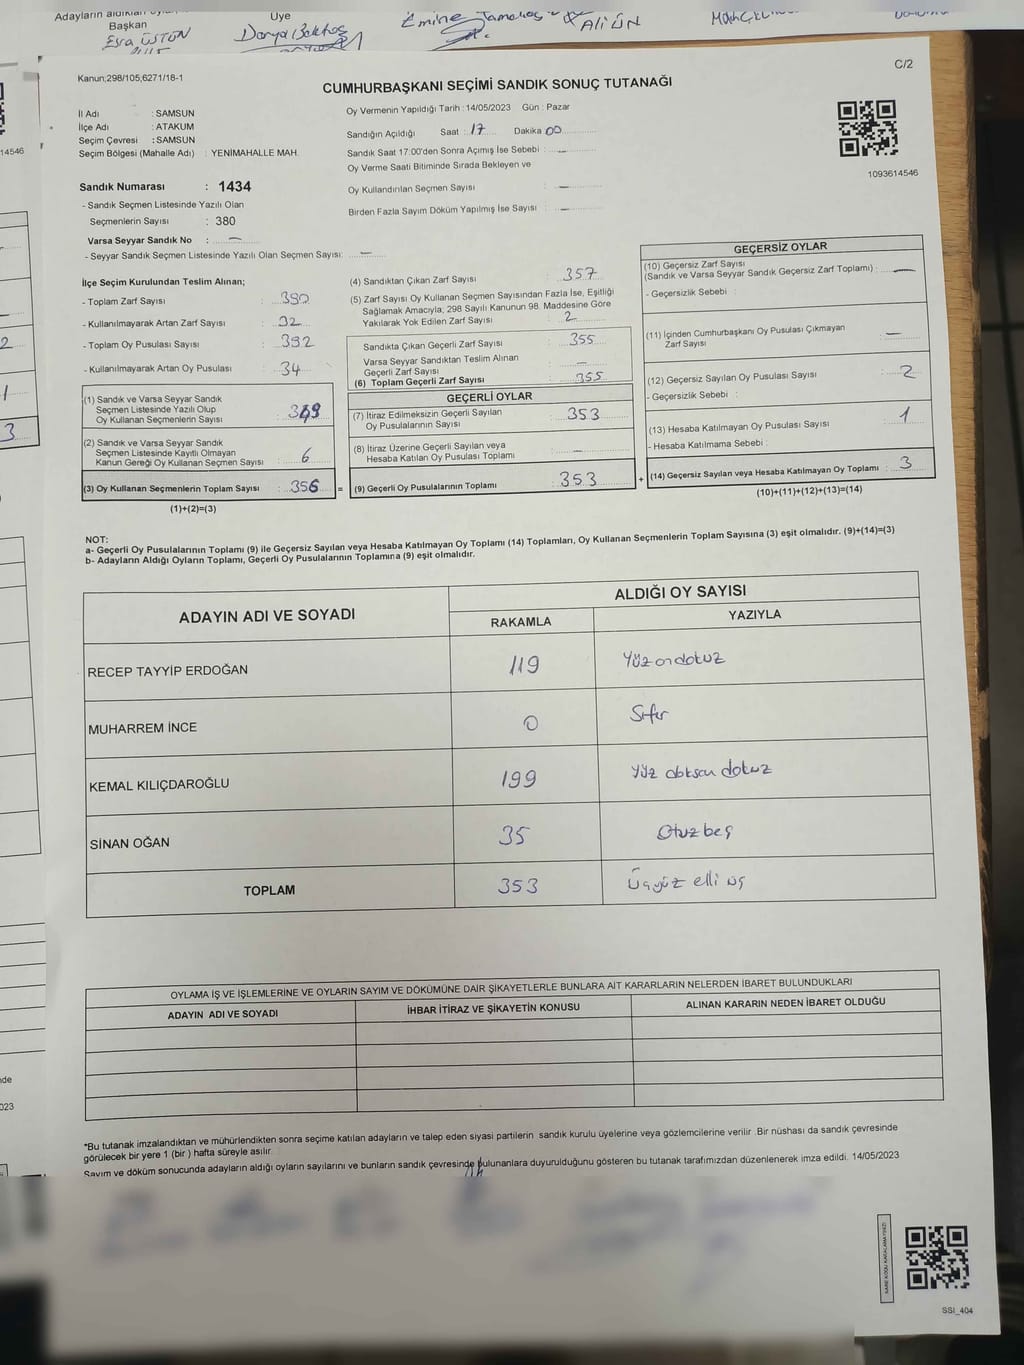 Başkan
Üye
Esra ÜSTÜN
Emine
Ali ÜN
Kanun;298/105,6271/18-1
C/2
CUMHURBAŞKANI SEÇİMİ SANDIK SONUÇ TUTANAĞI
İl Adı : SAMSUN
İlçe Adı : ATAKUM
Seçim Çevresi : SAMSUN
Seçim Bölgesi (Mahalle Adı) : YENİMAHALLE MAH.
Sandık Numarası : 1434
- Sandık Seçmen Listesinde Yazılı Olan
Seçmenlerin Sayısı : 380
Varsa Seyyar Sandık No : —
- Seyyar Sandık Seçmen Listesinde Yazılı Olan Seçmen Sayısı: —
Oy Vermenin Yapıldığı Tarih : 14/05/2023 Gün : Pazar
Sandığın Açıldığı Saat : 17 Dakika 00
Sandık Saat 17:00'den Sonra Açımış İse Sebebi : —
Oy Verme Saati Bitiminde Sırada Bekleyen ve
Oy Kullandırılan Seçmen Sayısı : —
Birden Fazla Sayım Döküm Yapılmış İse Sayısı : —
1093614546
İlçe Seçim Kurulundan Teslim Alınan;
- Toplam Zarf Sayısı : 390
- Kullanılmayarak Artan Zarf Sayısı : 32
- Toplam Oy Pusulası Sayısı : 392
- Kullanılmayarak Artan Oy Pusulası : 34
(1) Sandık ve Varsa Seyyar Sandık
Seçmen Listesinde Yazılı Olup
Oy Kullanan Seçmenlerin Sayısı
(2) Sandık ve Varsa Seyyar Sandık
Seçmen Listesinde Kayıtlı Olmayan
Kanun Gereği Oy Kullanan Seçmen Sayısı : 6
(3) Oy Kullanan Seçmenlerin Toplam Sayısı : 356 =
(1)+(2)=(3)
(4) Sandıktan Çıkan Zarf Sayısı : 357
(5) Zarf Sayısı Oy Kullanan Seçmen Sayısından Fazla İse, Eşitliği
Sağlamak Amacıyla; 298 Sayılı Kanunun 98. Maddesine Göre
Yakılarak Yok Edilen Zarf Sayısı : 2
Sandıkta Çıkan Geçerli Zarf Sayısı : 355
Varsa Seyyar Sandıktan Teslim Alınan
Geçerli Zarf Sayısı : —
(6) Toplam Geçerli Zarf Sayısı : 355
GEÇERLİ OYLAR
(7) İtiraz Edilmeksizin Geçerli Sayılan
Oy Pusulalarının Sayısı : 353
(8) İtiraz Üzerine Geçerli Sayılan veya
Hesaba Katılan Oy Pusulası Toplamı : —
(9) Geçerli Oy Pusulalarının Toplamı : 353 +
GEÇERSİZ OYLAR
(10) Geçersiz Zarf Sayısı
(Sandık ve Varsa Seyyar Sandık Geçersiz Zarf Toplamı) : —
- Geçersizlik Sebebi :
(11) İçinden Cumhurbaşkanı Oy Pusulası Çıkmayan
Zarf Sayısı : —
(12) Geçersiz Sayılan Oy Pusulası Sayısı : 2
- Geçersizlik Sebebi :
(13) Hesaba Katılmayan Oy Pusulası Sayısı : 1
- Hesaba Katılmama Sebebi :
(14) Geçersiz Sayılan veya Hesaba Katılmayan Oy Toplamı : 3
(10)+(11)+(12)+(13)=(14)
NOT:
a- Geçerli Oy Pusulalarının Toplamı (9) ile Geçersiz Sayılan veya Hesaba Katılmayan Oy Toplamı (14) Toplamları, Oy Kullanan Seçmenlerin Toplam Sayısına (3) eşit olmalıdır. (9)+(14)=(3)
b- Adayların Aldığı Oyların Toplamı, Geçerli Oy Pusulalarının Toplamına (9) eşit olmalıdır.
ADAYIN ADI VE SOYADI
ALDIĞI OY SAYISI
RAKAMLA
YAZIYLA
RECEP TAYYİP ERDOĞAN 119 Yüz on dokuz
MUHARREM İNCE 0 Sıfır
KEMAL KILIÇDAROĞLU 199 Yüz doksan dokuz
SİNAN OĞAN 35 Otuz beş
TOPLAM 353 Üçyüz elli üç
OYLAMA İŞ VE İŞLEMLERİNE VE OYLARIN SAYIM VE DÖKÜMÜNE DAİR ŞİKAYETLERLE BUNLARA AİT KARARLARIN NELERDEN İBARET BULUNDUKLARI
ADAYIN ADI VE SOYADI
İHBAR İTİRAZ VE ŞİKAYETİN KONUSU
ALINAN KARARIN NEDEN İBARET OLDUĞU
*Bu tutanak imzalandıktan ve mühürlendikten sonra seçime katılan adayların ve talep eden siyasi partilerin sandık kurulu üyelerine veya gözlemcilerine verilir. Bir nüshası da sandık çevresinde
görülecek bir yere 1 (bir ) hafta süreyle asılır.
Sayım ve döküm sonucunda adayların aldığı oyların sayılarını ve bunların sandık çevresinde bulunanlara duyurulduğunu gösteren bu tutanak tarafımızdan düzenlenerek imza edildi. 14/05/2023
SSI_404